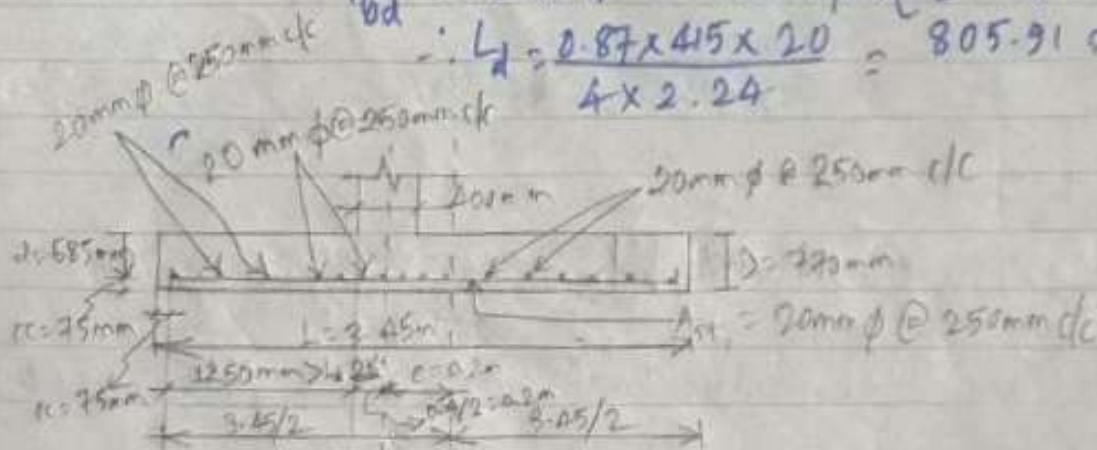 bd
∴ Ld = 0.87 x 415 x 20 / 4 x 2.24 = 805.91
20mm ϕ @ 250mm c/c
20 mm ϕ @ 250mm c/c
20mm ϕ @ 250mm c/c
400mm
d=685mm
D = 770mm
cc=75mm
L = 3.45m
Ast = 20mm ϕ @ 250mm c/c
1250mm > Ld
e=0.2m
cc=75mm
0.4/2=0.2m
3.45/2
3.45/2